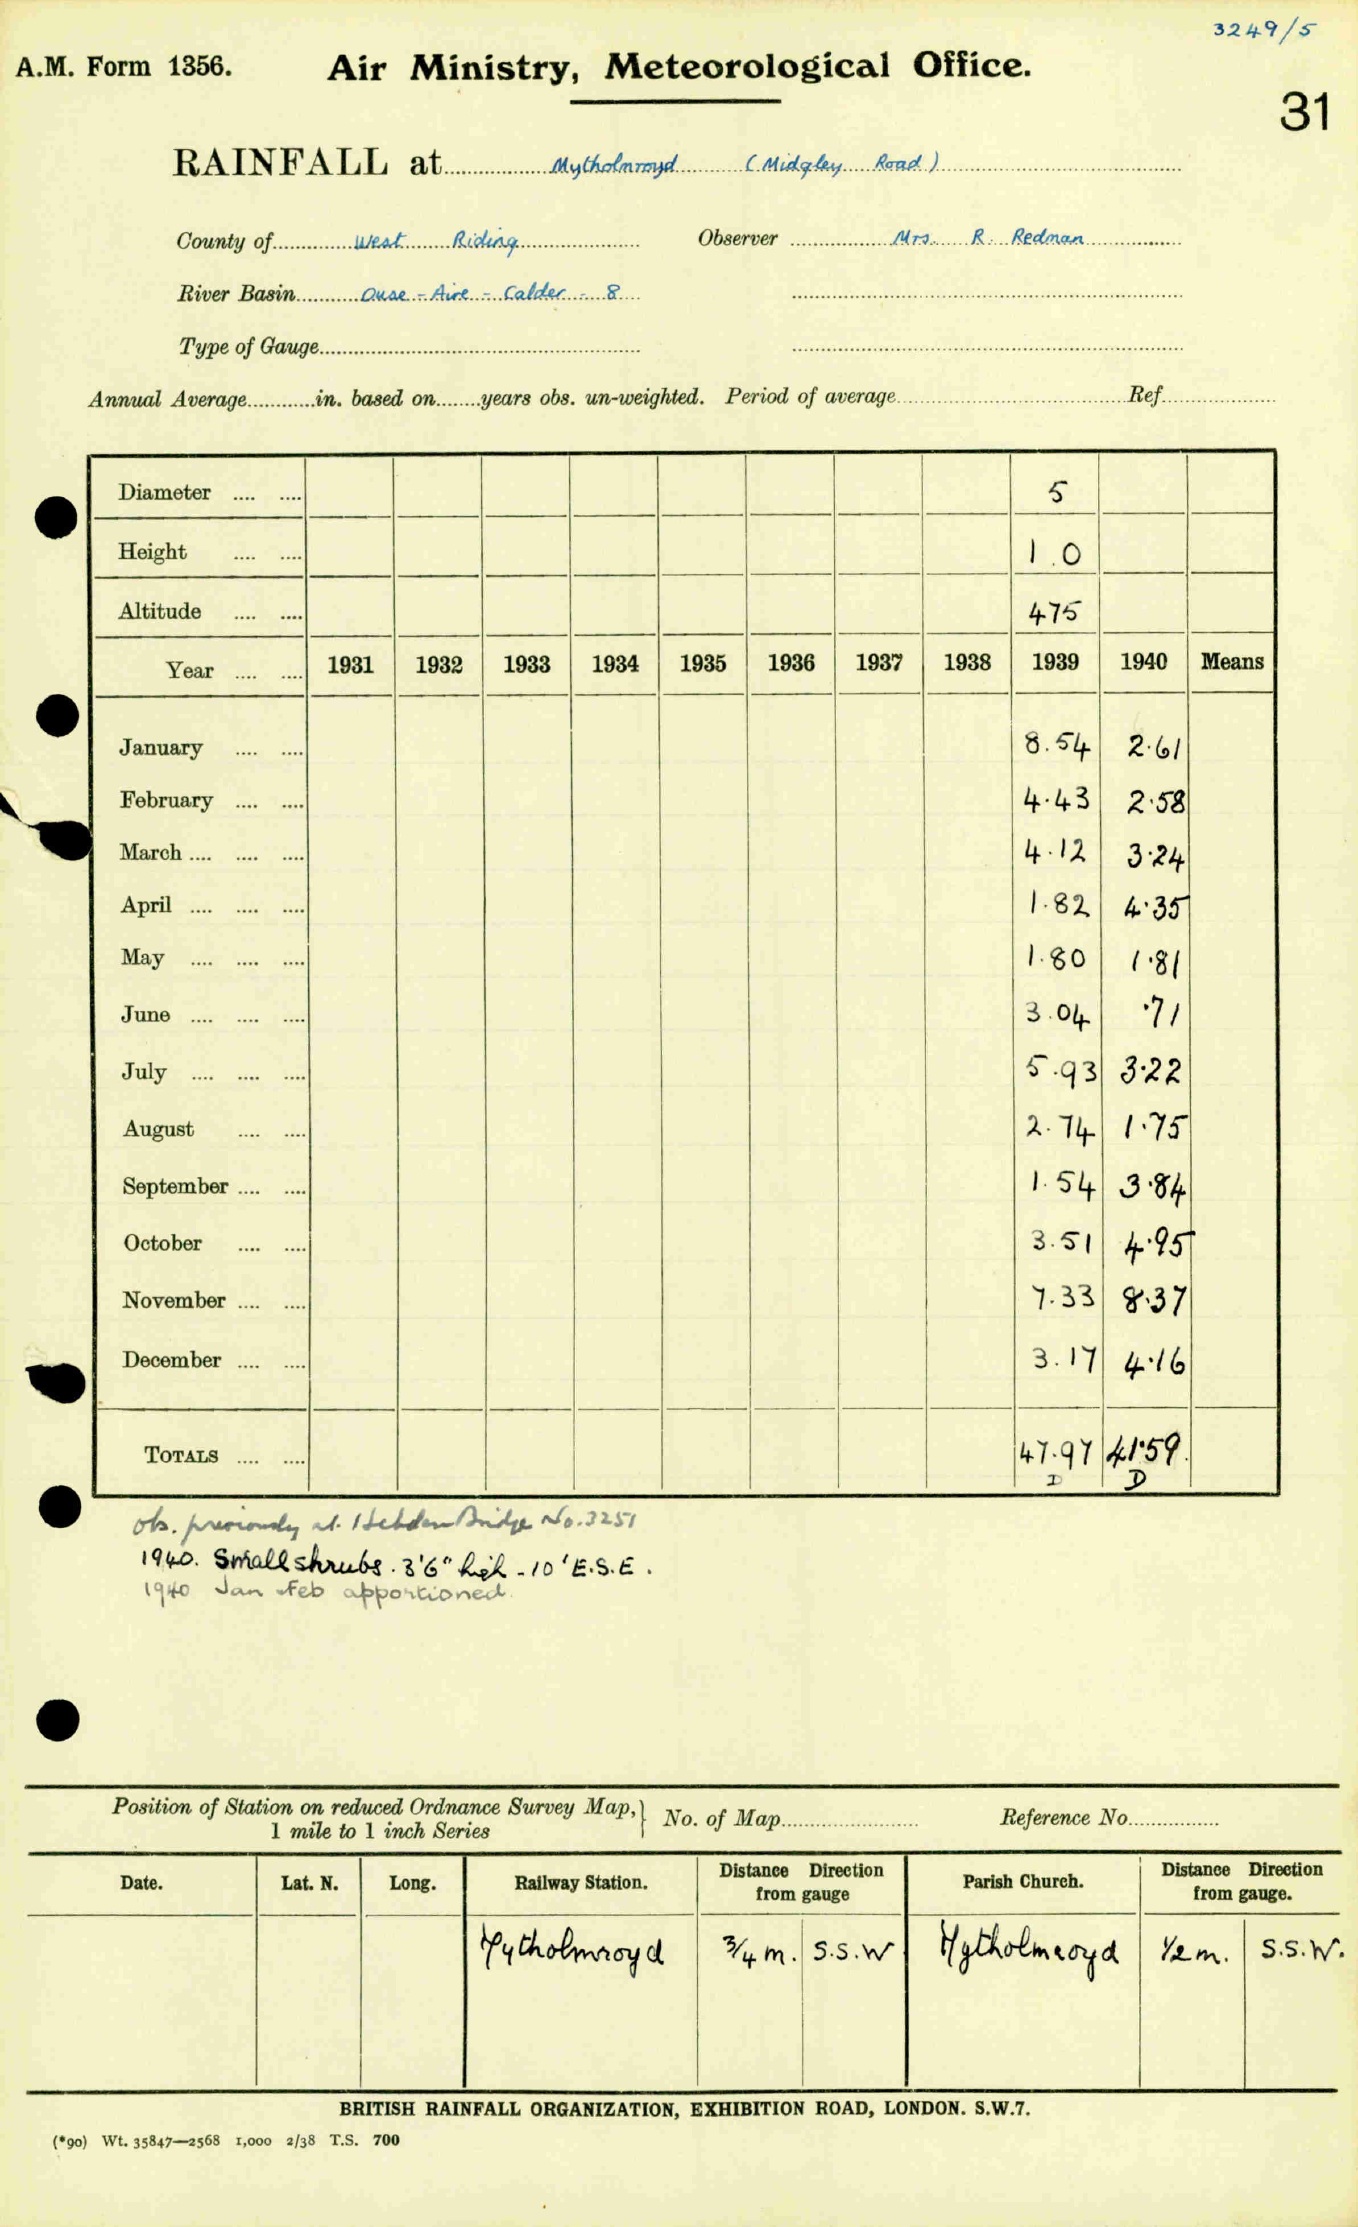 3249/5
A.M. Form 1356. Air Ministry, Meteorological Office.
31
RAINFALL at Mytholmroyd (Midgley Road)
County of West Riding Observer Mrs. R. Redman
River Basin Ouse - Aire - Calder - 8
Type of Gauge
Annual Average in. based on years obs. un-weighted. Period of average Ref.
Diameter 5
Height 1.0
Altitude 475
Year 1931 1932 1933 1934 1935 1936 1937 1938 1939 1940 Means
January 8.54 2.61
February 4.43 2.58
March 4.12 3.24
April 1.82 4.35
May 1.80 1.81
June 3.04 .71
July 5.93 3.22
August 2.74 1.75
September 1.54 3.84
October 3.51 4.95
November 7.33 8.37
December 3.17 4.16
TOTALS 47.97 41.59
D D
obs. previously at Hebden Bridge No. 3251
1940. Small shrubs. 3'6" high - 10' E.S.E.
1940 Jan Feb apportioned.
Position of Station on reduced Ordnance Survey Map, } No. of Map Reference No.
1 mile to 1 inch Series
Date. Lat. N. Long. Railway Station. Distance Direction from gauge Parish Church. Distance Direction from gauge.
Mytholmroyd 3/4 m. S.S.W Mytholmroyd 1/2 m. S.S.W.
BRITISH RAINFALL ORGANIZATION, EXHIBITION ROAD, LONDON. S.W.7.
(*90) Wt. 35847—2568 1,000 2/38 T.S. 700